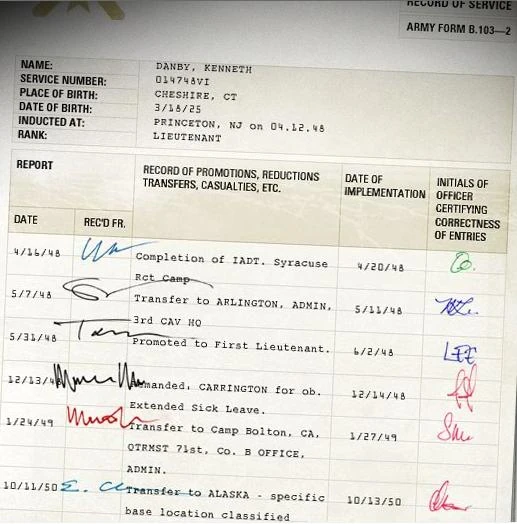 RECORD OF SERVICE
ARMY FORM B.103—2
NAME: DANBY, KENNETH
SERVICE NUMBER: 014748VI
PLACE OF BIRTH: CHESHIRE, CT
DATE OF BIRTH: 3/18/25
INDUCTED AT: PRINCETON, NJ on 04.12.48
RANK: LIEUTENANT
REPORT
RECORD OF PROMOTIONS, REDUCTIONS
TRANSFERS, CASUALTIES, ETC.
DATE OF
IMPLEMENTATION
INITIALS OF
OFFICER
CERTIFYING
CORRECTNESS
OF ENTRIES
DATE REC'D FR.
4/16/48 Completion of IADT. Syracuse 4/20/48
Rct Camp
5/7/48 Transfer to ARLINGTON, ADMIN, 5/11/48
3rd CAV HQ
5/31/48 Promoted to First Lieutenant. 6/2/48 LEE
12/13/48 emanded, CARRINGTON for ob. 12/14/48
Extended Sick Leave.
1/24/49 Transfer to Camp Bolton, CA, 1/27/49
QTRMST 71st, Co. B OFFICE,
ADMIN.
10/11/50 Transfer to ALASKA - specific 10/13/50
base location classified